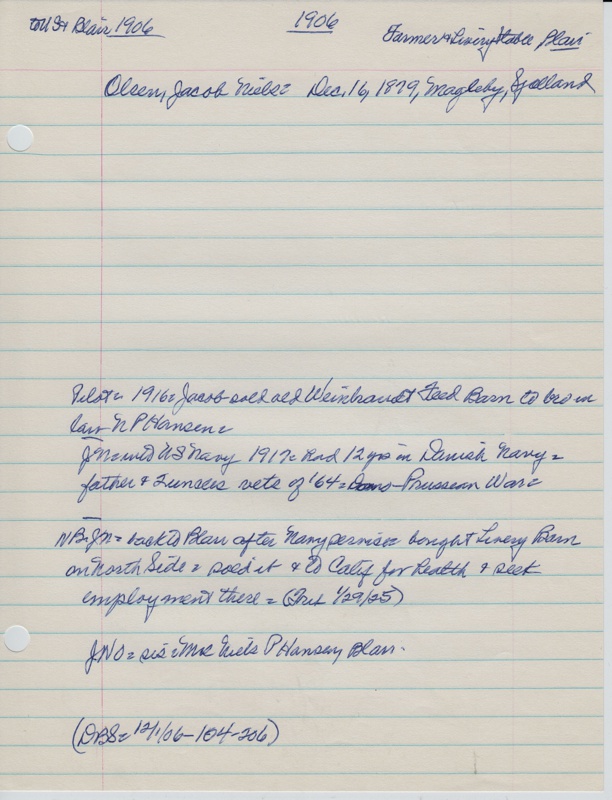 to US & Blair 1906
1906
Farmer & Livery Stable Blair
Olsen, Jacob Niels= Dec. 16, 1879, Magleby, Sjolland
Pilot= 1916= Jacob sold old Weinbrandt Feed Barn to bro in
law N P Hansen=
JN= into US Navy 1917= had 12 yrs in Danish Navy=
father & 2 uncles vets of '64= Dano-Prussian War=
NB= JN= back to Blair after Navy service= bought Livery Barn
on North Side= sold it & to Calif for health & seek
employment there= ( 1/29/25)
JNO= sis= Mrs Niels P Hansen, Blair.
(DBS= 12/1/06-104-206)